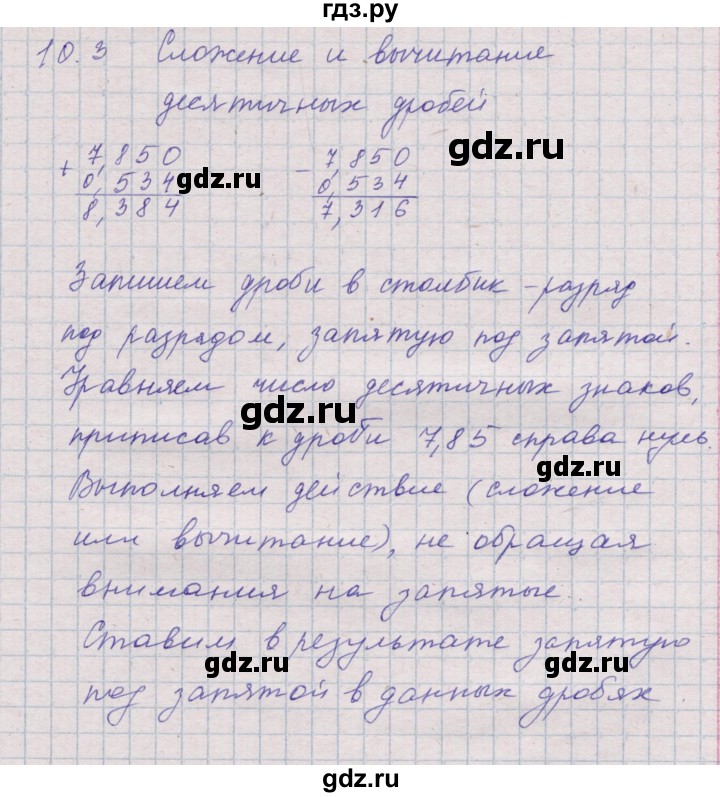 гдз.ру
10.3 Сложение и вычитание
десятичных дробей
+ 7,850 - 7,850
0,534 0,534
8,384 7,316
gdz.ru gdz.ru gdz.ru
Запишем дроби в столбик - разряд
под разрядом, запятую под запятой.
Уравняем число десятичных знаков,
gdz.ru
приписав к дроби 7,85 справа нуль.
gdz.ru
Выполняем действие (сложение
или вычитание), не обращая
внимания на запятые.
Ставим в результате запятую
gdz.ru gdz.ru
под запятой в данных дробях.
gdz.ru